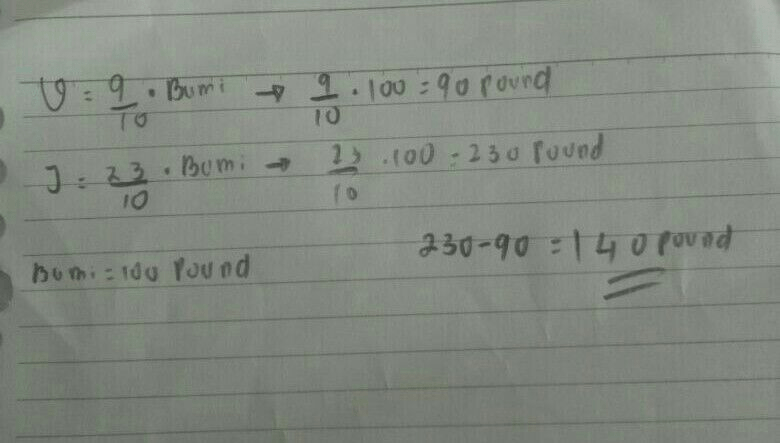 V = 9/10 • Bumi → 9/10 . 100 = 90 Pound
J = 23/10 • Bumi → 23/10 . 100 = 230 Pound
230-90 = 140 Pound
Bumi = 100 Pound